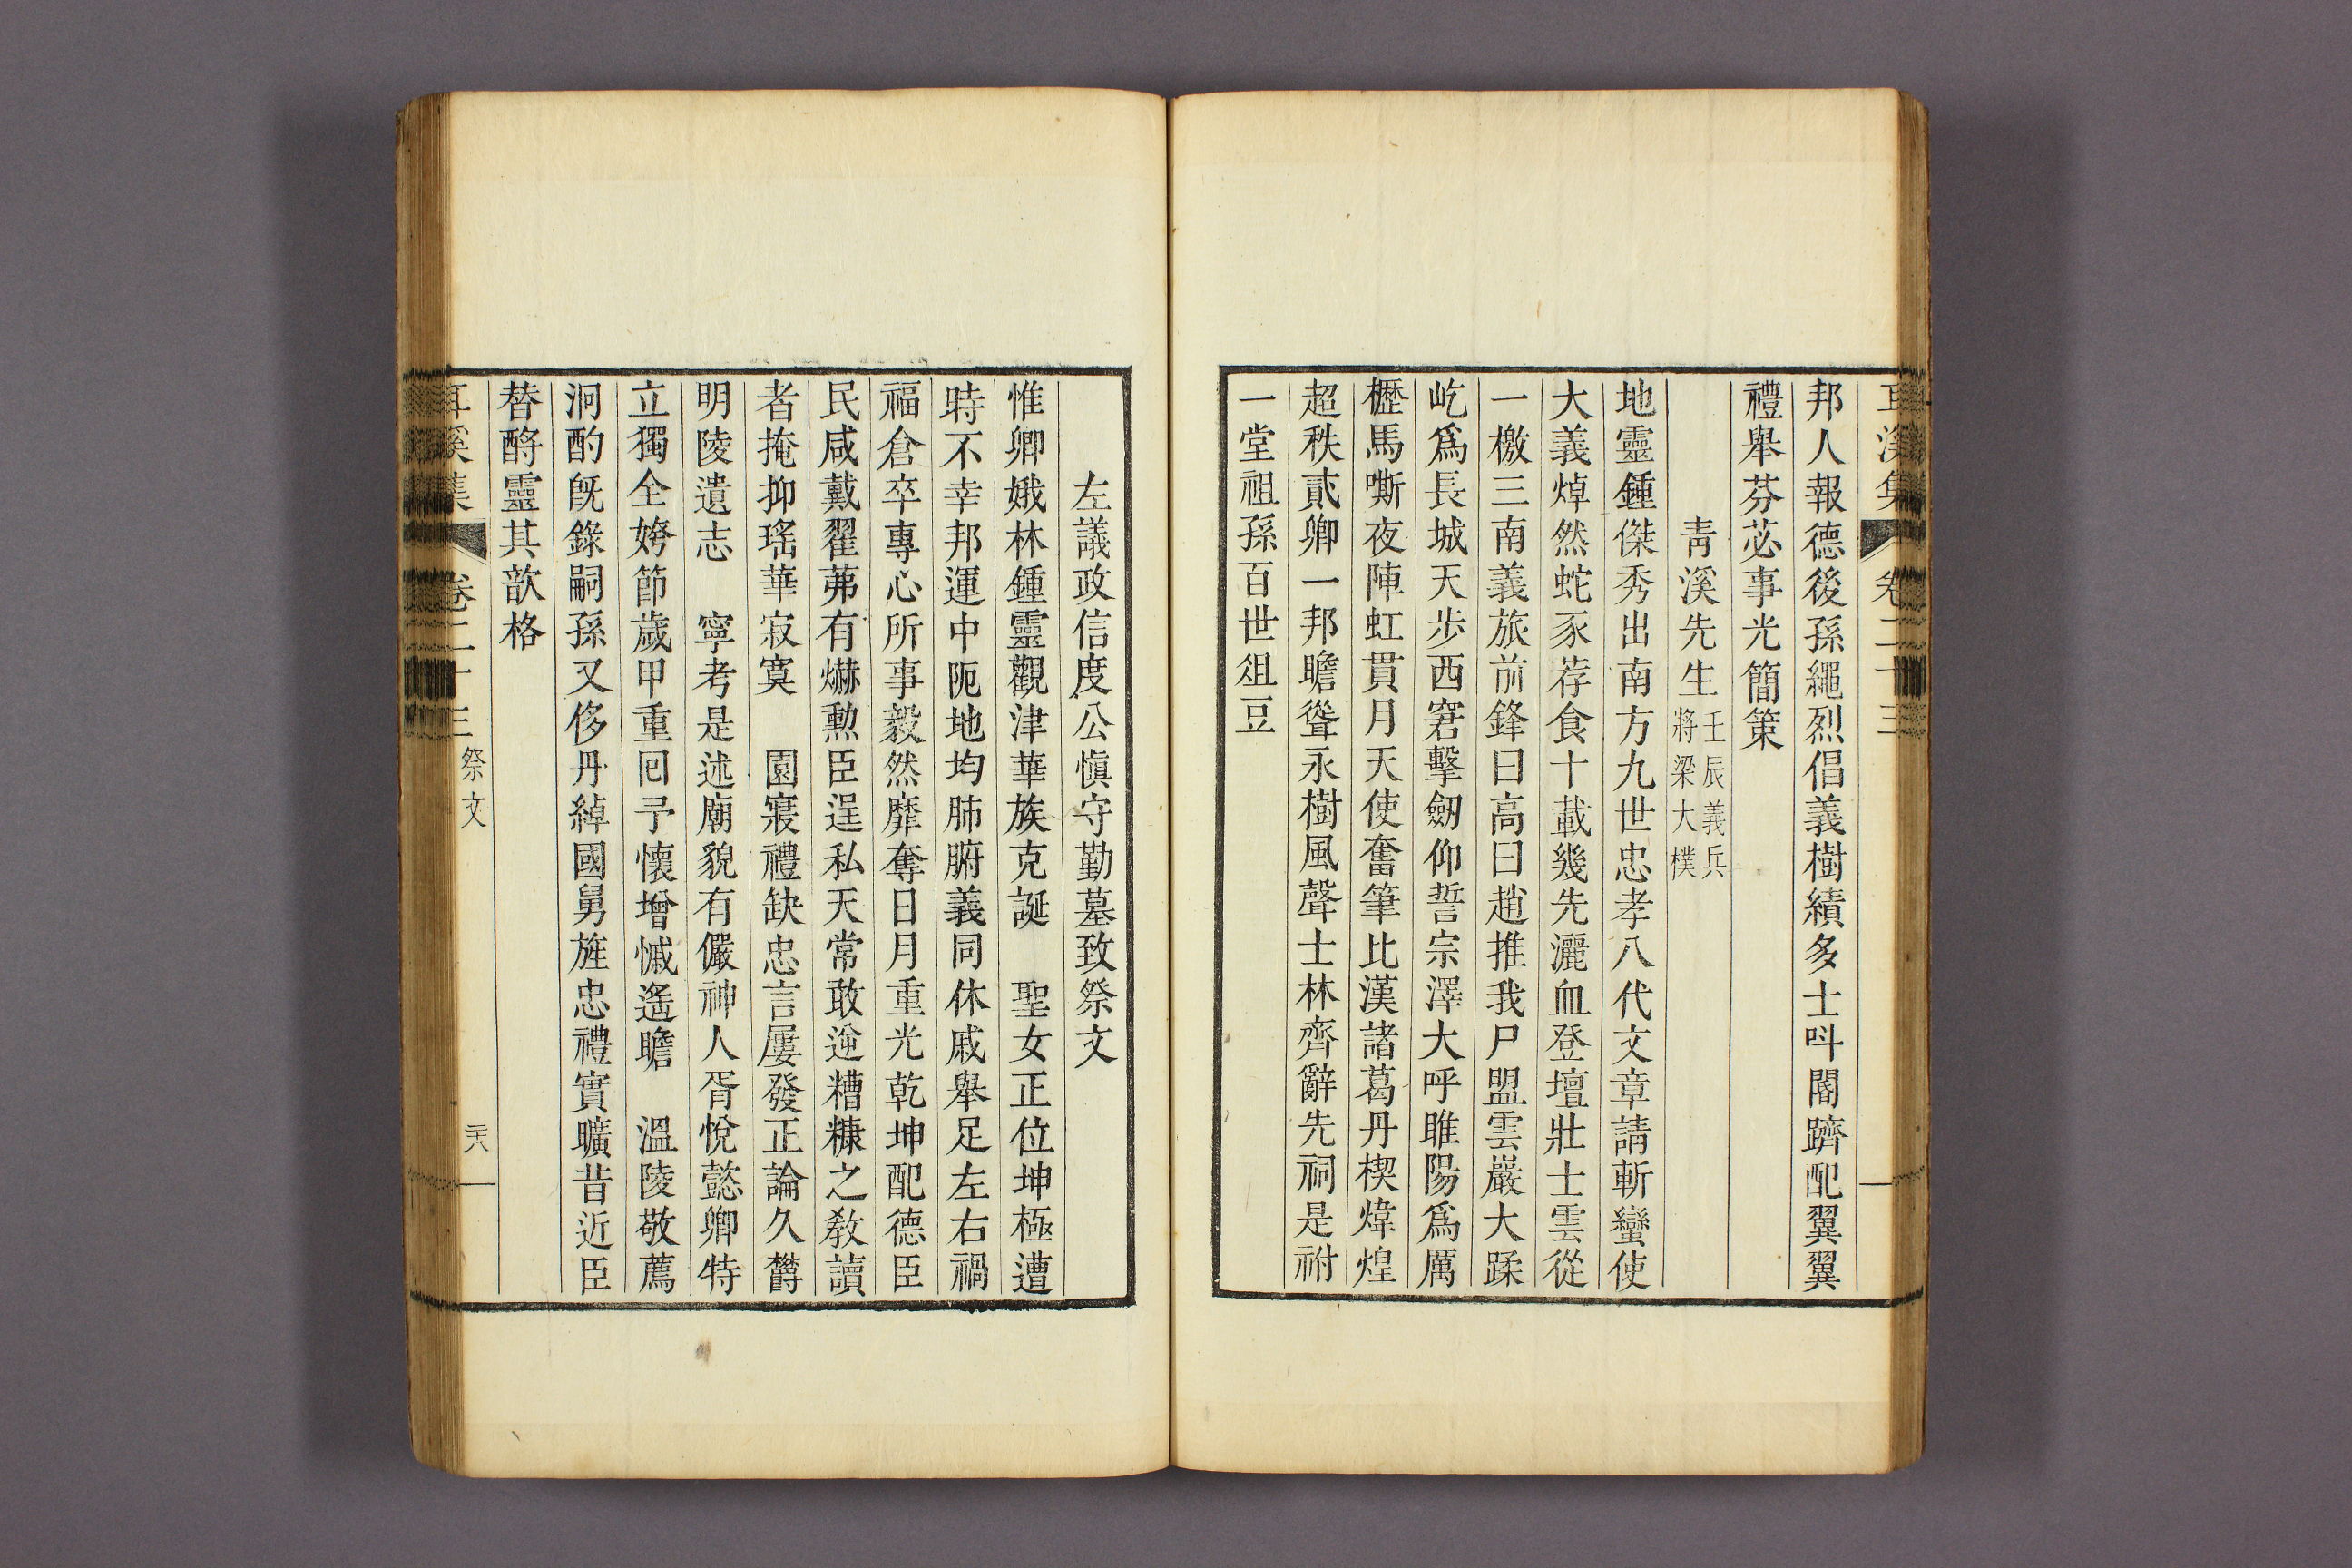 耳溪集 卷二十三
邦人報德後孫繩烈倡義樹績多士呌閽躋配翼翼
禮舉芬苾事光簡策
靑溪先生壬辰義兵將梁大樸
地靈鍾傑秀出南方九世忠孝八代文章請斬蠻使
大義焯然蛇豕荐食十載幾先灑血登壇壯士雲從
一檄三南義旅前鋒曰高曰趙推我尸盟雲巖大蹂
屹爲長城天步西窘擊劒仰誓宗澤大呼睢陽爲厲
櫪馬嘶夜陣虹貫月天使奮筆比漢諸葛丹楔煒煌
超秩貳卿一邦瞻聳永樹風聲士林齊辭先祠是祔
一堂祖孫百世俎豆
左議政信度公愼守勤墓致祭文
惟卿娥林鍾靈觀津華族克誕 聖女正位坤極遭
時不幸邦運中阨地均肺腑義同休戚舉足左右禍
福倉卒專心所事毅然靡奪日月重光乾坤配德臣
民咸戴翟茀有爀勲臣逞私天常敢逆糟糠之敎讀
者掩抑瑤華寂寞 園寢禮缺忠言屢發正論久欝
明陵遺志 寧考是述廟貌有儼神人胥悅懿卿特
立獨全姱節歲甲重回予懷增慽遙瞻 溫陵敬薦
泂酌旣錄嗣孫又侈丹綽國舅旌忠禮實曠昔近臣
替酹靈其歆格
耳溪集 卷二十三 祭文 二十八